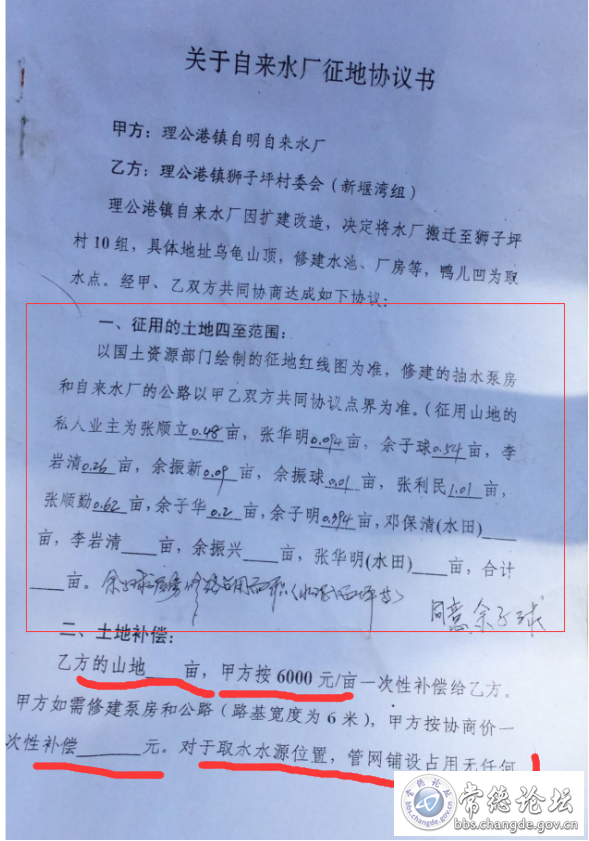 关于自来水厂征地协议书
甲方：理公港镇自明自来水厂
乙方：理公港镇狮子坪村委会（新堰湾组）
理公港镇自来水厂因扩建改造，决定将水厂搬迁至狮子坪
村10组，具体地址乌龟山顶，修建水池、厂房等，鸭儿凹为取
水点。经甲、乙双方共同协商达成如下协议：
一、征用的土地四至范围：
以国土资源部门绘制的征地红线图为准，修建的抽水泵房
和自来水厂的公路以甲乙双方共同协议点界为准。（征用山地的
私人业主为张顺立0.48亩，张华明0.094亩，余子球0.54亩，李
岩清0.26亩，余振新0.09亩，余振球0.01亩，张利民1.01亩，
张顺勤0.62亩，余子华0.2亩，余子明0.394亩，邓保清(水田)____
亩，李岩清____亩，余振兴____亩，张华明(水田)____亩，合计
____亩。
同意余子球
二、土地补偿：
乙方的山地____亩，甲方按6000元/亩一次性补偿给乙方。
甲方如需修建泵房和公路（路基宽度为6米），甲方按协商价一
次性补偿______元。对于取水水源位置，管网铺设占用无任何
常德论坛
bbs.changde.gov.cn